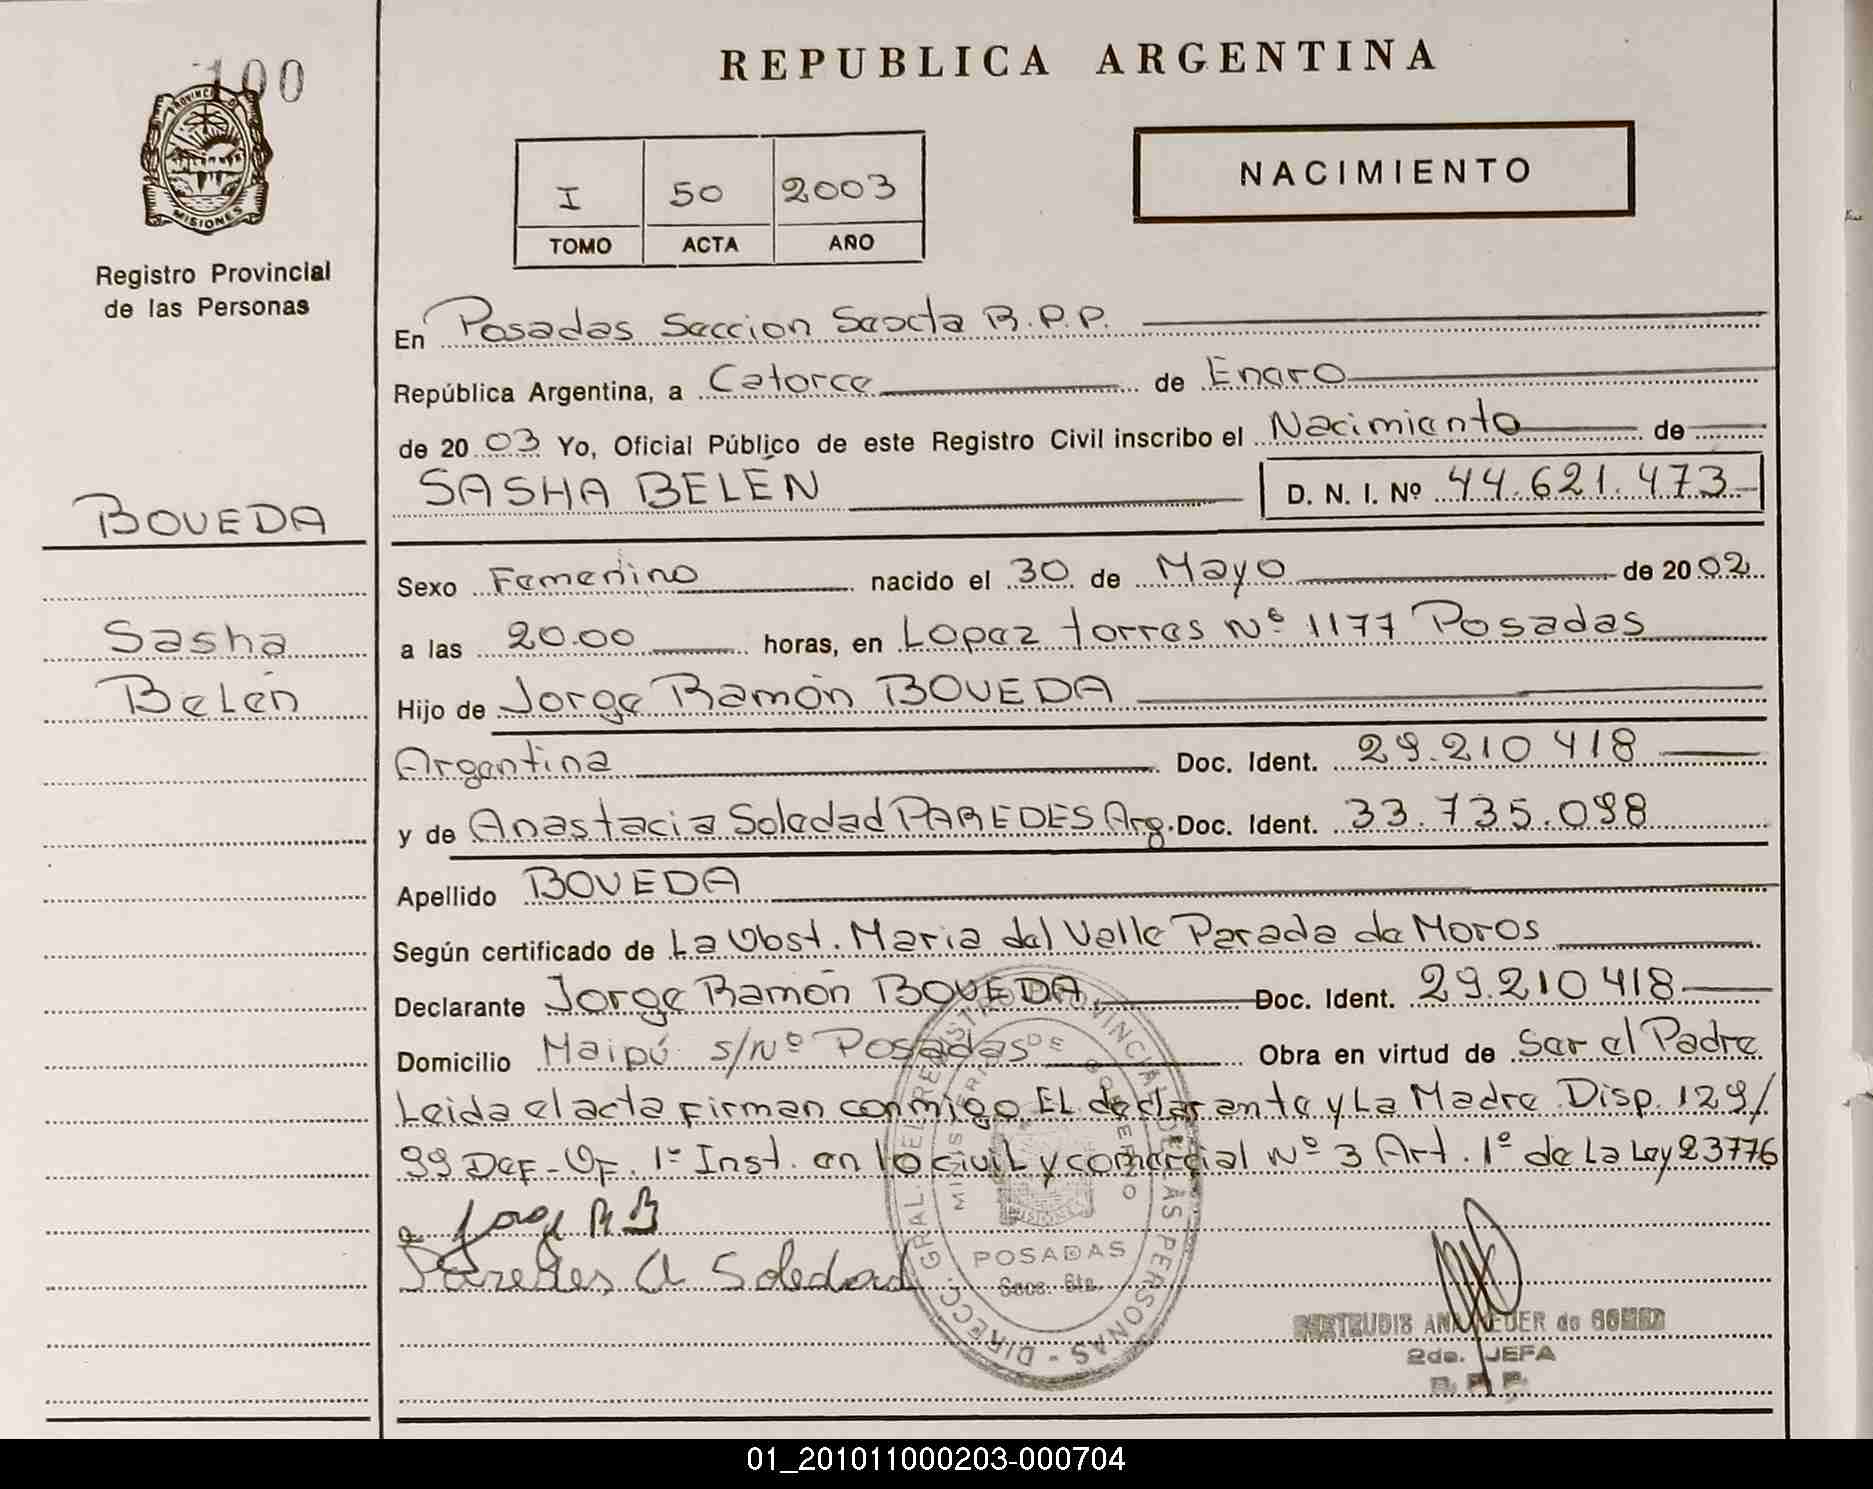 100
PROVINCIA DE
MISIONES
Registro Provincial
de las Personas
BOVEDA
Sasha
Belén
REPUBLICA ARGENTINA
I 50 2003
TOMO ACTA AÑO
NACIMIENTO
En Posadas Seccion Sexcta R.P.P.
República Argentina, a Catorce de Enero
de 2003 Yo, Oficial Público de este Registro Civil inscribo el Nacimiento de
SASHA BELÉN D. N. I. Nº 44.621.473
Sexo Femenino nacido el 30 de Mayo de 2002
a las 20.00 horas, en Lopez torres Nº 1177 Posadas
Hijo de Jorge Ramón BOVEDA
Argentina Doc. Ident. 29.210 418
y de Anastacia Soledad PAREDES Arg. Doc. Ident. 33.735.098
Apellido BOVEDA
Según certificado de La Obst. Maria del Valle Parada de Moros
Declarante Jorge Ramón BOVEDA Doc. Ident. 29.210 418
Domicilio Maipú s/Nº Posadas Obra en virtud de Ser el Padre
Leida el acta firman conmigo EL declarante y La Madre Disp. 129/
99 Def-Of. 1º Inst. en lo civil y comercial Nº 3 Art. 1º de La Ley 23776
Jorge R B
Paredes A Soledad
DIRECC. GRAL. DEL REGISTRO PROVINCIAL DE LAS PERSONAS
MINISTERIO DE GOBIERNO
MISIONES
POSADAS
Secc. 6ta.
de GOMEZ
2da. JEFA
R. P. P.
01_201011000203-000704